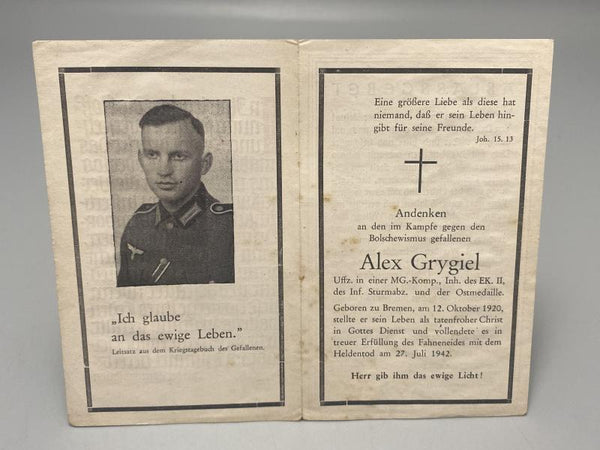 „Ich glaube
an das ewige Leben."
Leitsatz aus dem Kriegstagebuch der Gefallenen.
Eine größere Liebe als diese hat
niemand, daß er sein Leben hin-
gibt für seine Freunde.
Joh. 15. 13
Andenken
an den im Kampfe gegen den
Bolschewismus gefallenen
Alex Grygiel
Uffz. in einer MG.-Komp., Inh. des EK. II,
des Inf. Sturmabz. und der Ostmedaille.
Geboren zu Bremen, am 12. Oktober 1920,
stellte er sein Leben als tatenfroher Christ
in Gottes Dienst und vollendete es in
treuer Erfüllung des Fahneneides mit dem
Heldentod am 27. Juli 1942.
Herr gib ihm das ewige Licht!